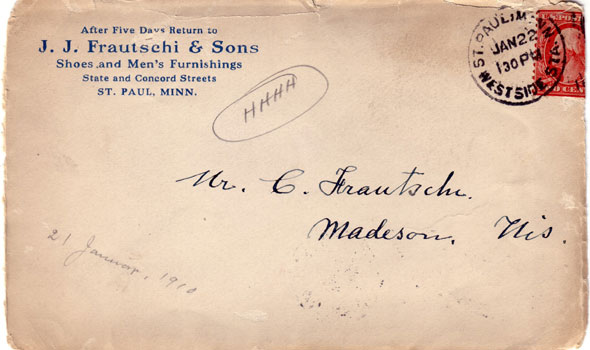 After Five Days Return to
J. J. Frautschi & Sons
Shoes and Men's Furnishings
State and Concord Streets
ST. PAUL, MINN.
HHHH
ST. PAUL, MINN.
JAN 22
1 30 PM
WEST SIDE STA.
U.S. POST
CENT
Mr. C. Frautschi.
Madeson, Wis.
21 Januar, 1910